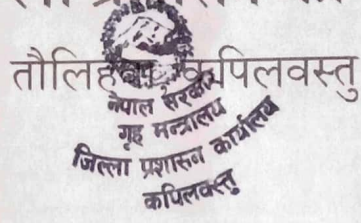 तौलिहवा, कपिलवस्तु
नेपाल सरकार
गृह मन्त्रालय
जिल्ला प्रशासन कार्यालय
कपिलवस्तु